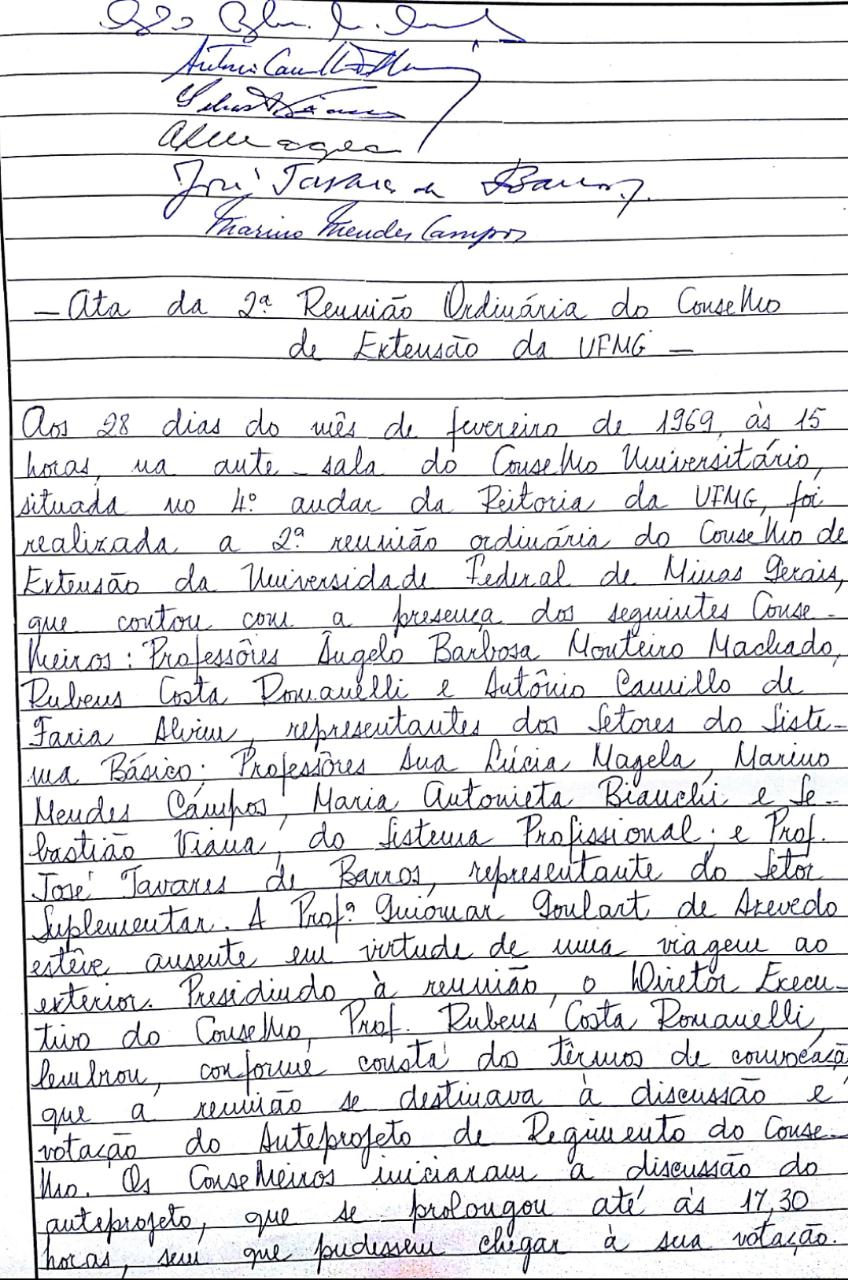 José Tavares de Barros
Marino Mendes Campos
— Ata da 2ª Reunião Ordinária do Conselho
de Extensão da UFMG —
Aos 28 dias do mês de fevereiro de 1969, às 15
horas, na ante-sala do Conselho Universitário,
situada no 4º andar da Reitoria da UFMG, foi
realizada a 2ª reunião ordinária do Conselho de
Extensão da Universidade Federal de Minas Gerais,
que contou com a presença dos seguintes Conse-
lheiros: Professôres Ângelo Barbosa Monteiro Machado,
Rubens Costa Romanelli e Antônio Camillo de
Faria Alvim, representantes dos Setores do Siste-
ma Básico; Professôres Ana Lúcia Magela, Marino
Mendes Campos, Maria Antonieta Bianchi e Se-
bastião Viana, do Sistema Profissional; e Prof.
José Tavares de Barros, representante do Setor
Suplementar. A Profª Guiomar Goulart de Azevedo
estêve ausente em virtude de uma viagem ao
exterior. Presidindo à reunião, o Diretor Execu-
tivo do Conselho, Prof. Rubens Costa Romanelli,
lembrou, conforme consta dos têrmos de convocação
que a reunião se destinava à discussão e
votação do Anteprojeto de Regimento do Conse-
lho. Os Conselheiros iniciaram a discussão do
anteprojeto, que se prolongou até às 17,30
horas, sem que pudessem chegar à sua votação.